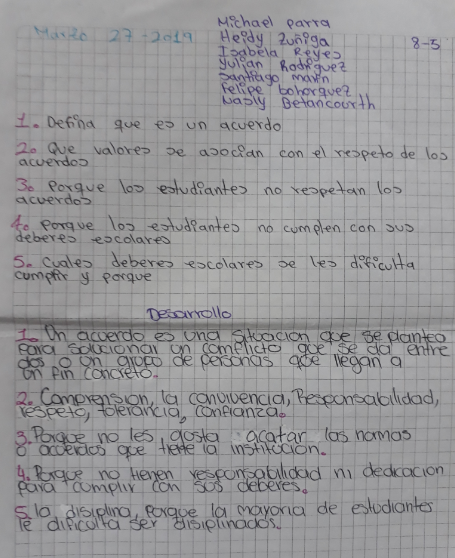 Marzo 27-2019
Michael parra
Heidy Zuñiga
Isabela Reyes
yulian Rodriguez
santiago marin
felipe bohorquez
Nasly Betancourth
8-3
1. Defina que es un acuerdo
2. Que valores se asocian con el respeto de los
acuerdos
3. porque los estudiantes no respetan los
acuerdos
4. porque los estudiantes no cumplen con sus
deberes escolares
5. cuales deberes escolares se les dificulta
cumplir y porque
Desarrollo
1. Un acuerdo es una situacion que se plantea
para solucionar un comflicto que se da entre
dos o un grupo de personas que llegan a
un fin concreto.
2. Comprension, la convivencia, Responsabilidad,
respeto, tolerancia, confianza.
3. Porque no les gosta acatar las normas
o acuerdos que tiene la institucion.
4. Porque no tienen responsabilidad ni dedicacion
para cumplir con sus deberes.
5. la disiplina, porque la mayoria de estudiantes
le dificulta ser disiplinados.